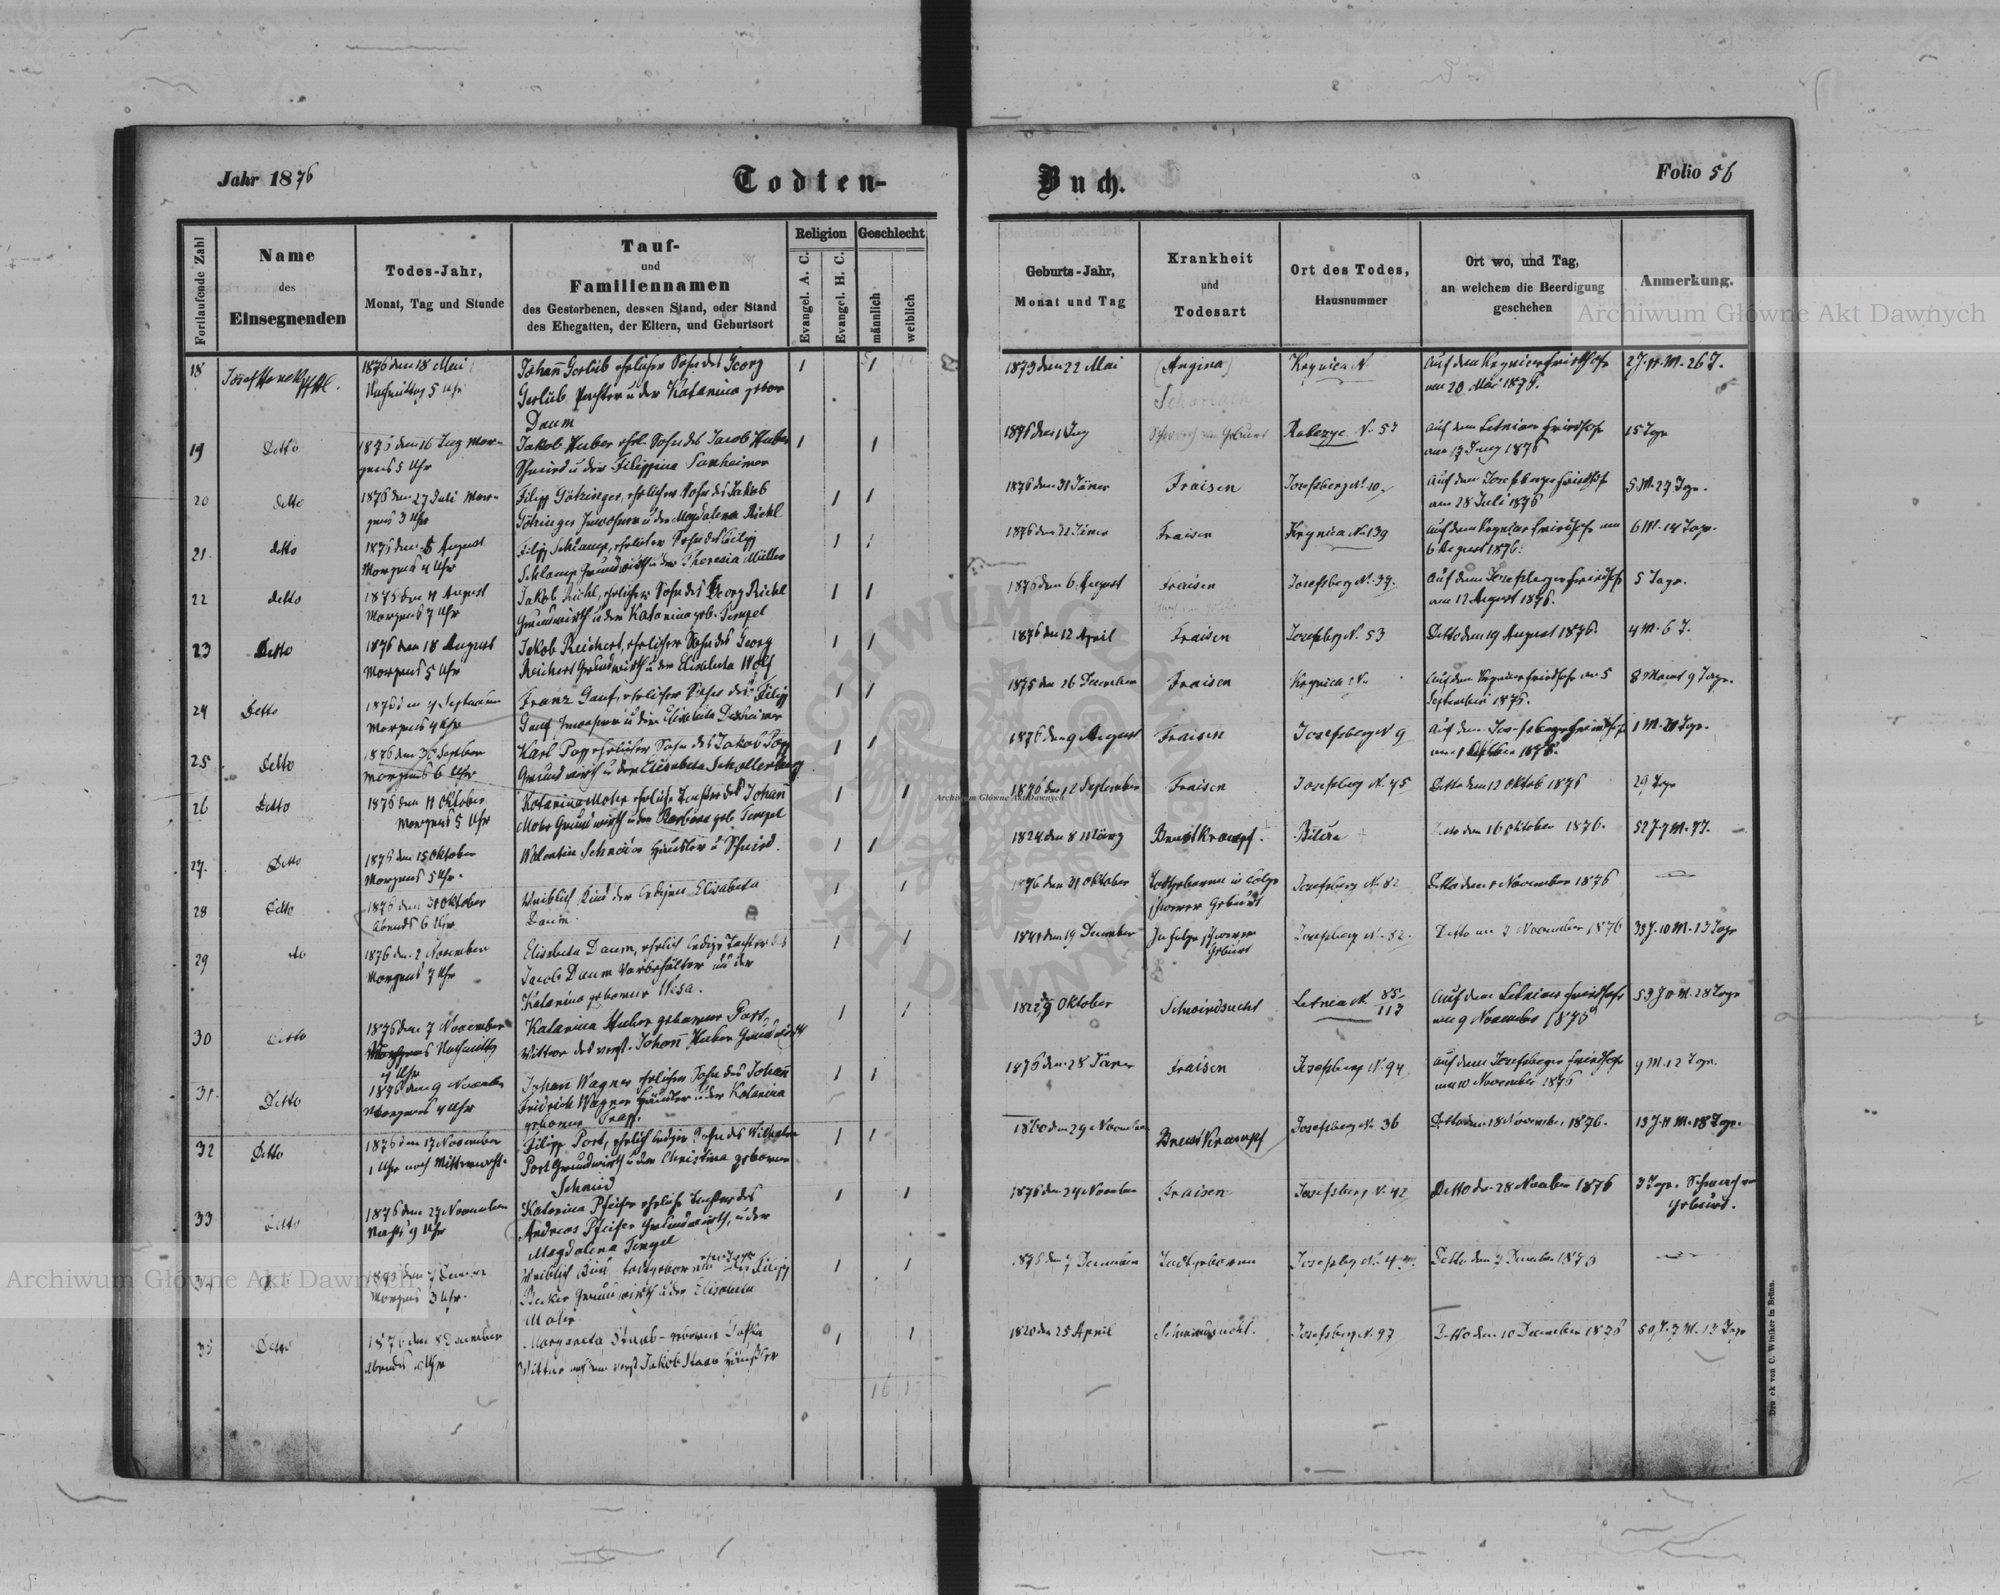 Jahr 1876
Todten-
Buch.
Folio 56
Fortlaufende Zahl
Name
des
Einsegnenden
Todes-Jahr,
Monat, Tag und Stunde
Tauf-
und
Familiennamen
des Gestorbenen, dessen Stand, oder Stand
des Ehegatten, der Eltern, und Geburtsort
Religion
Evangel. A. C.
Evangel. H. C.
Geschlecht
männlich
weiblich
Geburts-Jahr,
Monat und Tag
Krankheit
und
Todesart
Ort des Todes,
Hausnummer
Ort wo, und Tag,
an welchem die Beerdigung
geschehen
Anmerkung.
18
Josef
1876 den 18 Mai
Nachmittag 5 Uhr
Johann Gerlib ehelicher Sohn des Georg
Gerlib Pachter u der Katarina gebor
Daum
1 1
1873 den 22 Mai
(Angina)
Scharlach
Krynica N.
Auf dem Krynicer Friedhofe
am 20 Mai 1876.
19
Detto
1876 den 16 Juny Mor-
gens 5 Uhr
Jakob Huber ehel. Sohn des Jacob Huber
Schmied u der Filippina
1 1
1876 den 1 Juny
N. 53
Auf dem Letnier Friedhofe
am 17 Juny 1876
15 Tage
20
detto
1876 den 27 Juli Mor-
gens 3 Uhr
Filipp Götzinger, ehelicher Sohn des Jakob
Götzinger Inwohner u der Magdalena Riehl
1 1
1876 den 31 Jäner
Fraisen
Josefsberg N. 10
Auf dem Josefsberger Friedhofe
am 28 Juli 1876
5 M. 27 Tage.
21.
detto
1876 den 5 August
Morgens 4 Uhr
Filipp Schlamp, ehelicher Sohn des Filipp
Schlamp Grundwirth u der Theresia Müller
1 1
1876 den 21 Jäner
Fraisen
Krynica No 139
Auf dem Krynicer Friedhofe am
6 August 1876.
6 M. 14 Tage.
22
detto
1876 den 11 August
Morgens 7 Uhr
Jakob Riehl, ehelicher Sohn des Georg Riehl
Grundwirth u der Katarina geb. Tempel
1 1
1876 den 6. August
Fraisen
Josefsberg N. 39.
Auf dem Josefsberger Friedhofe
am 12 August 1876.
5 Tage.
23
Detto
1876 den 18 August
Morgens 5 Uhr
Jakob Reichert, ehelicher Sohn des Georg
Reichert Grundwirth u der Elisabeta Wolf
1 1
1876 den 12 April
Fraisen
Josefsberg N. 53
Detto den 19 August 1876.
4 M. 6 T.
24
Detto
Morgens 4 Uhr
Franz Gauf, ehelicher Sohn des Filipp
Gauf Inwohner u der Elisabeta
1 1
1875 den 26 December
Fraisen
Krynica N.
Auf dem Krynicer Friedhofe am 5
September 1876.
8 Monat 9 Tage.
25
Detto
1876 den 30 September
Morgens 6 Uhr
Karl Popp ehelicher Sohn des Jakob Popp
Grundwirth u der Elisabeta Schollenberg
1 1
1876 den 9 August
Fraisen
Josefsberg N 9
Auf dem Josefsberger Friedhofe
am 1 Oktober 1876.
1 M. 21 Tage.
26
Detto
1876 den 11 Oktober
Morgens 5 Uhr
Katarina Mohr eheliche Tochter des Johann
Mohr Grundwirth u der Barbara geb. Tempel
1 1
1876 den 12 September
Fraisen
Josefsberg N. 45
Detto den 12 Oktob 1876
29 Tage
27.
Detto
1876 den 15 Oktober
Morgens 5 Uhr.
Walentin Schneider Häusler u Schmied.
1 1
1824 den 8 März
Brustkrampf.
Bilcze
Detto den 16 Oktober 1876.
52 J. 7 M. 7 T.
28
Detto
1876 den 31 Oktober
Abends 6 Uhr
Weiblich Kind der ledigen Elisabeta
Daum.
1 1
1876 den 31 Oktober
Todtgeboren in Folge
schwerer Geburt
Josefsberg N. 82
Detto den 1 November 1876
29
do
1876 den 2 November
Morgens 7 Uhr
Elisabeta Daum, ehelich ledige Tochter des
Jacob Daum Vorbehälter und der
Katarina geborne Wesa.
1 1
den 19 December
In Folge schwerer
Geburt
Josefsberg N. 82.
Detto am 3 November 1876
33 J. 10 M. 13 Tage
30
Detto
1876 den 7 November
Nachmittag
4 Uhr
Katarina Huber geborene Port,
Wittwe des verst. Johann Huber Grundwirth
1 1
1822 9 Oktober
Schwindsucht
Letnia N. 85/113
Auf dem Letnier Friedhofe
am 9 November 1876
53 J. 11 M. 28 Tage
31.
Detto
1876 den 9 November
Morgens 4 Uhr
Johann Wagner ehelicher Sohn des Johann
Fridrich Wagner Häusler u der Katarina
geborne Trapp.
1 1
1876 den 28 Jäner
Fraisen
Josefsberg N. 94
Auf dem Josefsberger Friedhofe
am 10 November 1876
9 M. 12 Tage.
32
Detto
1876 den 17 November
1 Uhr nach Mitternacht.
Filipp Port, ehelich lediger Sohn des Wilhelm
Port Grundwirth u der Christina geborne
Schmid
1 1
1860 den 29 November
Brustkrampf
Josefsberg No 36
Detto den 18 November 1876.
15 J. 11 M. 18 Tage.
33
Detto
1876 den 27 November
Nachts 9 Uhr
Katarina Pfeifer eheliche Tochter des
Andreas Pfeifer Grundwirth, u der
Magdalena Tempel
1 1
1876 den 24 November
Fraisen
Josefsberg N. 42
Detto den 28 November 1876
3 Tage. Schwach von
Geburt.
34
Morgens 3 Uhr.
Weiblich Kind, todtgeboren des Filipp
Becker Grundwirth u der Elisabeta
Mohr
1 1
1876 den 7 December
Todtgeboren
Josefsberg No
Detto den 7 December 1876
35
Detto
1876 den 8 December
Abends Uhr
Margareta Staub geborene
Wittwe nach dem verst. Jakob Staub Häusler
1 1
1820 den 25 April
Schwindsucht.
Josefsberg N. 97
Detto den 10 December 1876
M. 13 Tage
16 17
Druck von C. Winiker in Brünn.
Archiwum Główne Akt Dawnych
Archiwum Główne Akt Dawnych
Archiwum Główne Akt Dawnych
ARCHIWUM GŁÓWNE AKT DAWNYCH